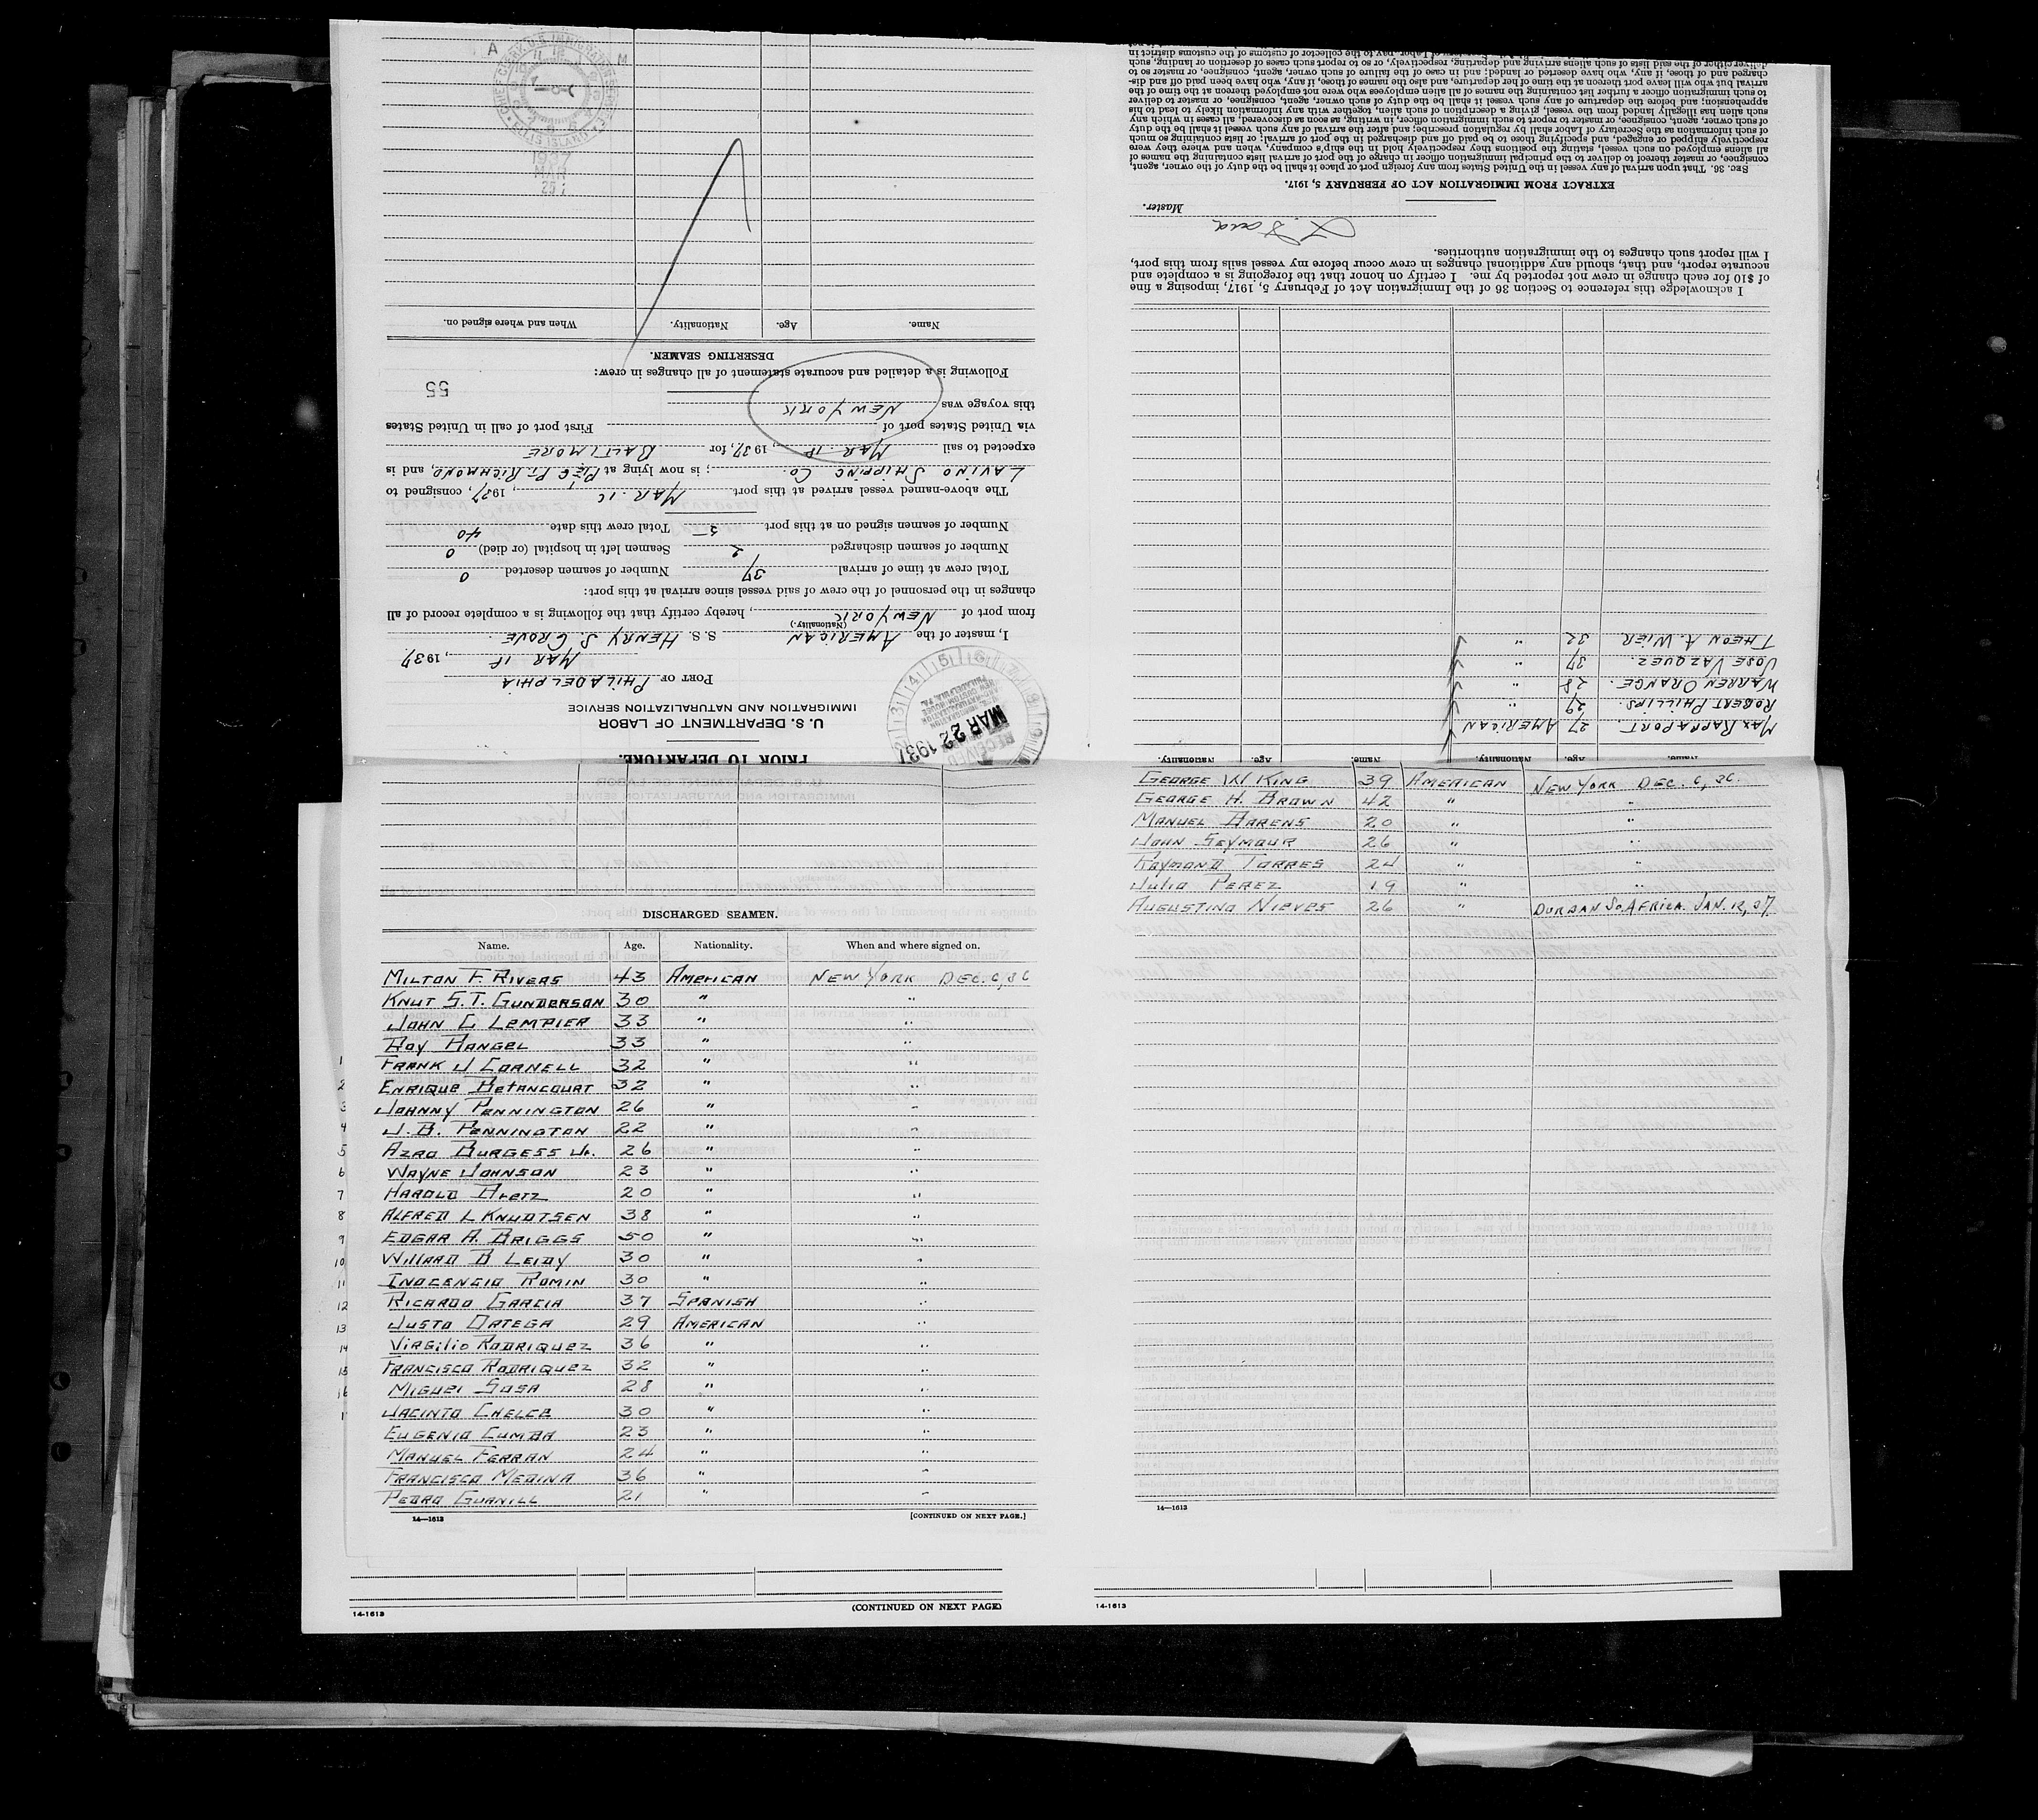 PRIOR TO DEPARTURE.
U. S. DEPARTMENT OF LABOR
IMMIGRATION AND NATURALIZATION SERVICE
RECEIVED
MAR 22 1937
PORT OF PHILADELPHIA
MAR 18, 1937
I, master of the AMERICAN S. S. HENRY S. GROVE.
(Nationality.)
from port of NEW YORK, hereby certify that the following is a complete record of all
changes in the personnel of the crew of said vessel since arrival at this port:
Total crew at time of arrival 37 Number of seamen deserted 0
Number of seamen discharged 2 Seamen left in hospital (or died) 0
Number of seamen signed on at this port 5 Total crew this date 40
The above-named vessel arrived at this port MAR. 16, 1937, consigned to
LAVINO SHIPPING CO.; is now lying at PIER G PT. RICHMOND, and is
expected to sail MAR. 18, 1937, for BALTIMORE
via United States port of First port of call in United States
this voyage was NEW YORK
55
Following is a detailed and accurate statement of all changes in crew:
DESERTING SEAMEN.
Name. Age. Nationality. When and where signed on.
1937
MAR
25
ELLIS ISLAND
A M
Name. Age. Nationality.
MAX RAPPAPORT. 27 AMERICAN
ROBERT PHILLIPS. 29 "
WARREN ORANGE. 28 "
JOSE VAZQUEZ. 37 "
THEON A. WIER 32 "
I acknowledge this reference to Section 36 of the Immigration Act of February 5, 1917, imposing a fine
of $10 for each change in crew not reported by me. I certify on honor that the foregoing is a complete and
accurate report, and that, should any additional changes in crew occur before my vessel sails from this port,
I will report such changes to the immigration authorities.
Master.
EXTRACT FROM IMMIGRATION ACT OF FEBRUARY 5, 1917.
SEC. 36. That upon arrival of any vessel in the United States from any foreign port or place it shall be the duty of the owner, agent,
consignee, or master thereof to deliver to the principal immigration officer in charge of the port of arrival lists containing the names of
all aliens employed on such vessel, stating the positions they respectively hold in the ship's company, when and where they were
respectively shipped or engaged, and specifying those to be paid off and discharged in the port of arrival; or lists containing so much
of such information as the Secretary of Labor shall by regulation prescribe; and after the arrival of any such vessel it shall be the duty
of such owner, agent, consignee, or master to report to such immigration officer, in writing, as soon as discovered, all cases in which any
such alien has illegally landed from the vessel, giving a description of such alien, together with any information likely to lead to his
apprehension; and before the departure of any such vessel it shall be the duty of such owner, agent, consignee, or master to deliver
to such immigration officer a further list containing the names of all alien employees who were not employed thereon at the time of the
arrival but who will leave port thereon at the time of her departure, and also the names of those, if any, who have been paid off and dis-
charged and of those, if any, who have deserted or landed; and in case of the failure of such owner, agent, consignee, or master so to
deliver either of the said lists of such aliens arriving and departing, respectively, or so to report such cases of desertion or landing, such
DISCHARGED SEAMEN.
Name. Age. Nationality. When and where signed on.
MILTON F. RIVERS 43 AMERICAN NEW YORK DEC. 6, 36
KNUT S. T. GUNDERSON 30 " "
JOHN C LEMPIER 33 " "
ROY RANGEL 33 " "
1 FRANK J CORNELL 32 " "
2 ENRIQUE BETANCOURT 32 " "
3 JOHNNY PENNINGTON 26 " "
4 J. B. PENNINGTON 22 " "
5 AZRO BURGESS Jr. 26 " "
6 WAYNE JOHNSON 23 " "
7 HAROLD 20 " "
8 ALFRED L KNUDTSEN 38 " "
9 EDGAR A. BRIGGS 50 " "
10 WILLARD B LEIDY 30 " "
11 INOCENCIO ROMIN 30 " "
12 RICARDO GARCIA 37 SPANISH "
13 JUSTO ORTEGA 29 AMERICAN "
14 VIRGILIO RODRIQUEZ 36 " "
15 FRANCISCO RODRIQUEZ 32 " "
16 MIGUEL SOSA 28 " "
1 JACINTO CHELCE 30 " "
EUGENIO CUMBA 23 " "
MANUEL FERRAN 24 " "
FRANCISCO MEDINA 36 " "
PEDRO GURNILL 21 " "
14—1613 [CONTINUED ON NEXT PAGE.]
GEORGE W KING 39 AMERICAN NEW YORK DEC. 6, 36.
GEORGE H. BROWN 42 " "
MANUEL BARENS 20 " "
JOHN SEYMOUR 26 " "
RAYMOND TORRES 24 " "
JULIO PEREZ 19 " "
AUGUSTINO NIEVES 26 " DURBAN So. AFRICA. JAN. 12, 37.
14—1613
14-1613 (CONTINUED ON NEXT PAGE)
14-1613